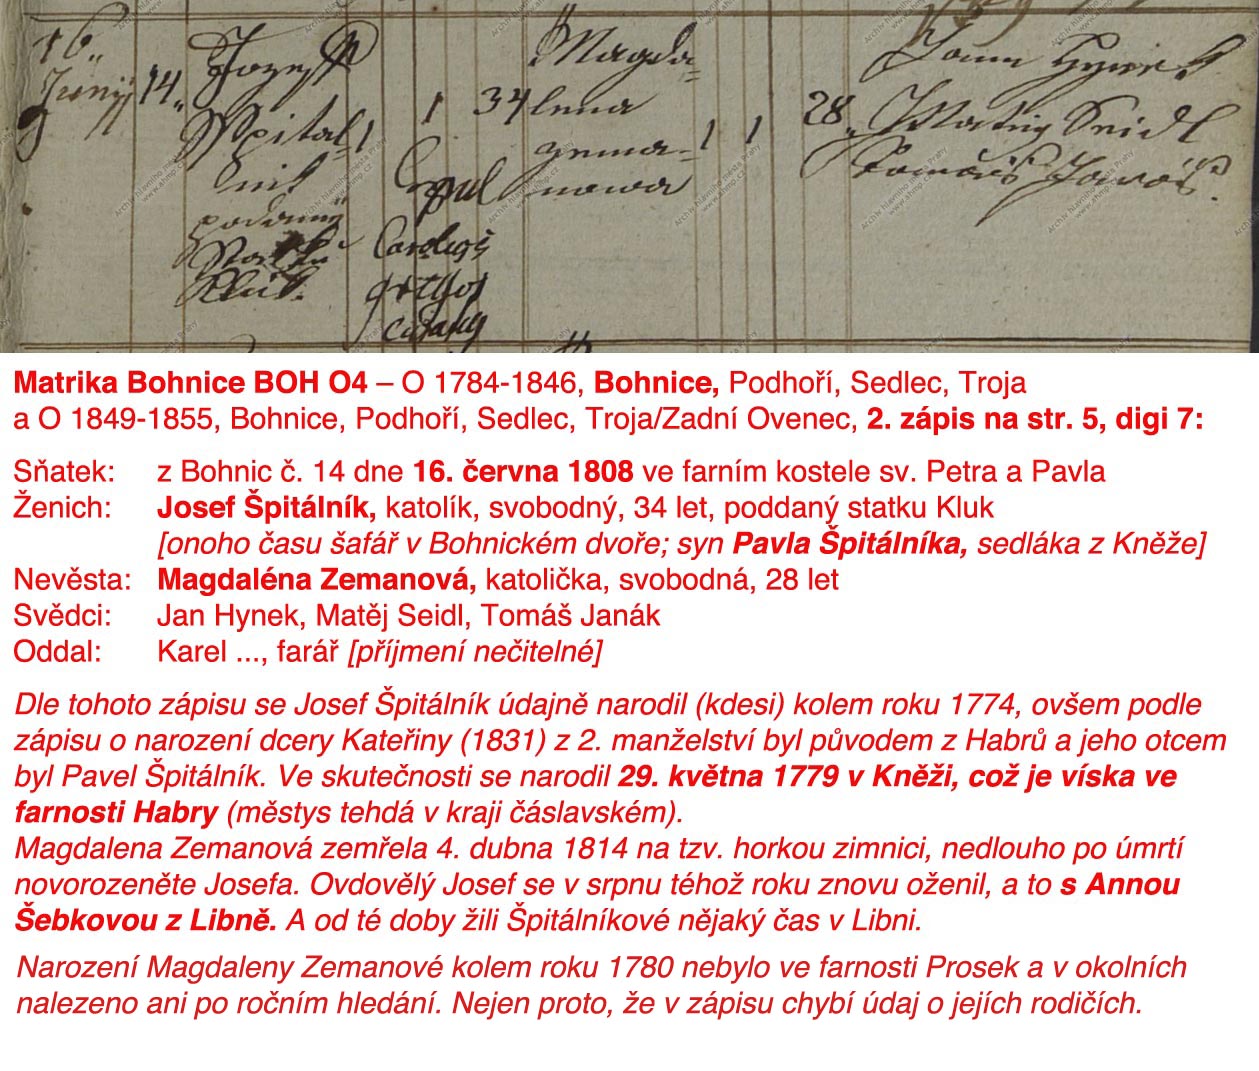 16.
Junij 14.
Jozeff
Spital-
nik
poddaný
Statku
Kluk.
1
1
Copul
Carolus
34
Magda-
lena
zema-
nowa
1
1
28.
Jann Hynek
Matiey Seidl
Tomáš
Matrika Bohnice BOH O4 – O 1784-1846, Bohnice, Podhoří, Sedlec, Troja
a O 1849-1855, Bohnice, Podhoří, Sedlec, Troja/Zadní Ovenec, 2. zápis na str. 5, digi 7:
Sňatek: z Bohnic č. 14 dne 16. června 1808 ve farním kostele sv. Petra a Pavla
Ženich: Josef Špitálník, katolík, svobodný, 34 let, poddaný statku Kluk
[onoho času šafář v Bohnickém dvoře; syn Pavla Špitálníka, sedláka z Kněže]
Nevěsta: Magdaléna Zemanová, katolička, svobodná, 28 let
Svědci: Jan Hynek, Matěj Seidl, Tomáš Janák
Oddal: Karel ..., farář [příjmení nečitelné]
Dle tohoto zápisu se Josef Špitálník údajně narodil (kdesi) kolem roku 1774, ovšem podle
zápisu o narození dcery Kateřiny (1831) z 2. manželství byl původem z Habrů a jeho otcem
byl Pavel Špitálník. Ve skutečnosti se narodil 29. května 1779 v Kněži, což je víska ve
farnosti Habry (městys tehdá v kraji čáslavském).
Magdalena Zemanová zemřela 4. dubna 1814 na tzv. horkou zimnici, nedlouho po úmrtí
novorozeněte Josefa. Ovdovělý Josef se v srpnu téhož roku znovu oženil, a to s Annou
Šebkovou z Libně. A od té doby žili Špitálníkové nějaký čas v Libni.
Narození Magdaleny Zemanové kolem roku 1780 nebylo ve farnosti Prosek a v okolních
nalezeno ani po ročním hledání. Nejen proto, že v zápisu chybí údaj o jejích rodičích.